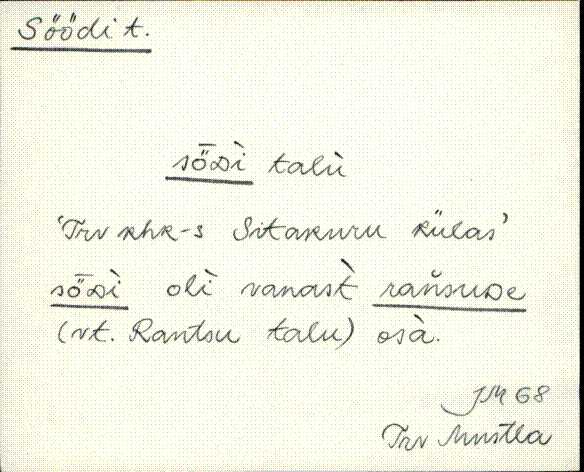 Söödi t.
sȫDì talù
'Trv khk-s Sitakuru külas'
sȫDì olì vanast̀ rańsuDe
(vt. Rantsu talu) osà.
JM 68
Trv Mustla